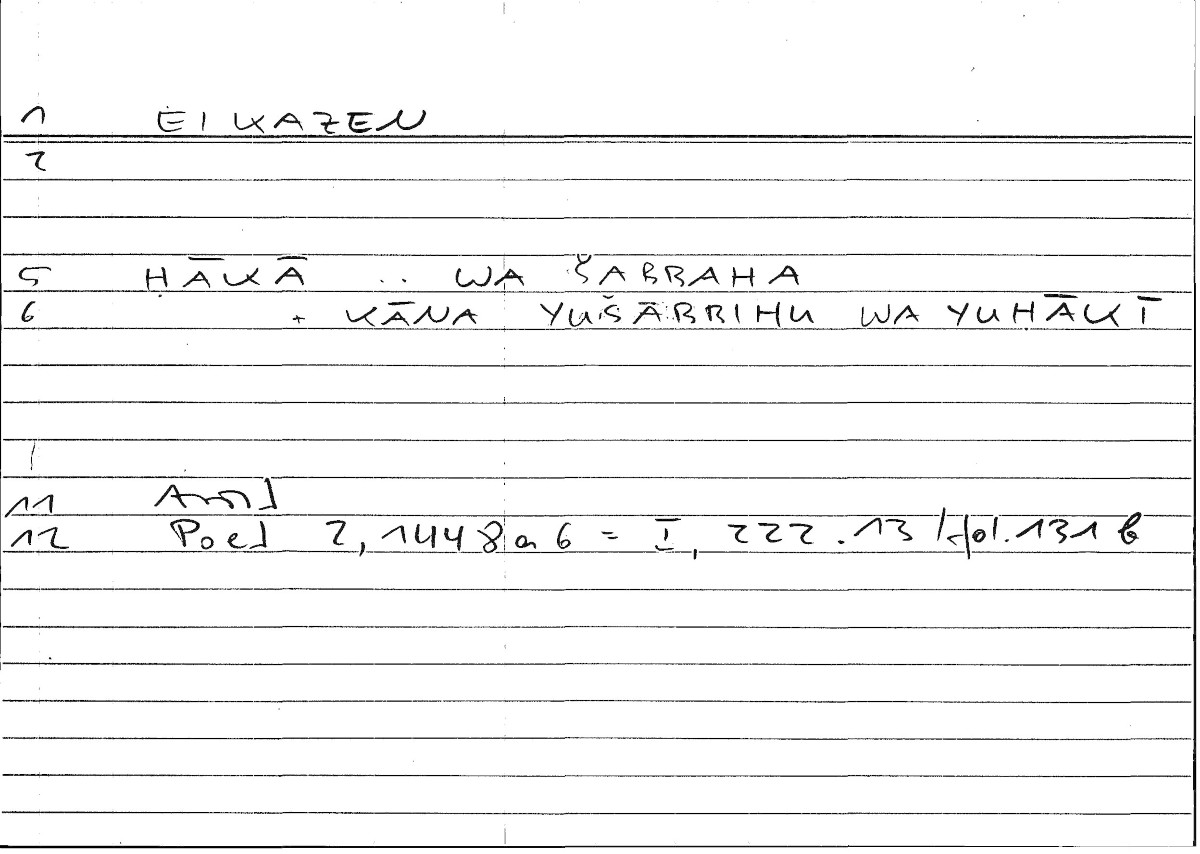 1 EIKAZEN
2
5 ḤĀKĀ .. WA ŠABBAHA
6 + KĀNA YUŠABBIHU WA YUḤĀKĪ
11
12 Poet 2, 1448 a 6 = I, 222.13 / fol. 131 b